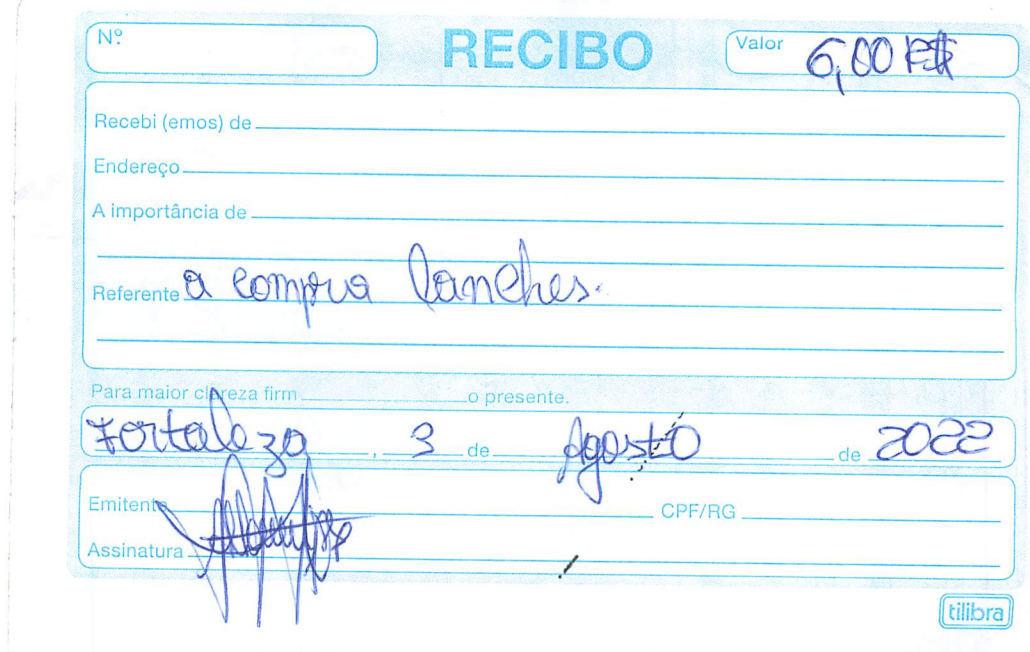 Nº RECIBO Valor 6,00 R$
Recebi (emos) de
Endereço
A importância de
Referente a compra lanches.
Para maior clareza firm o presente.
Fortaleza, 3 de Agosto de 2022
Emitente CPF/RG
Assinatura
tilibra